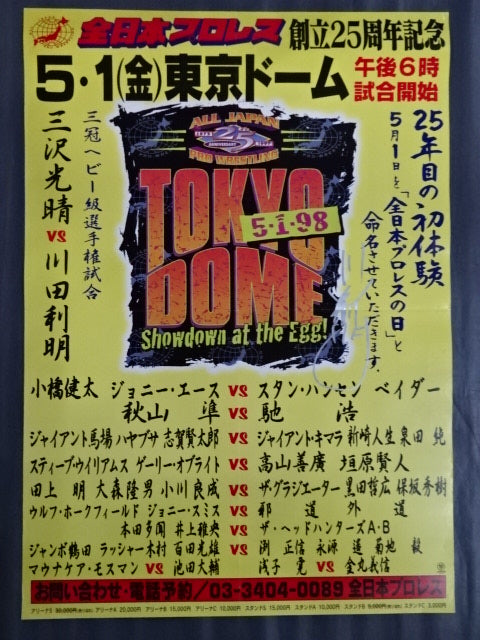 全日本プロレス 創立25周年記念
5・1(金)東京ドーム 午後6時試合開始
25年目の初体験
5月1日を「全日本プロレスの日」と
命名させていただきます。
三冠ヘビー級選手権試合
三沢光晴 VS 川田利明
ALL JAPAN
25
ANNIVERSARY
PRO WRESTLING
TOKYO
5-1-98
DOME
Showdown at the Egg!
小橋健太 ジョニー・エース VS スタン・ハンセン ベイダー
秋山 準 VS 馳 浩
ジャイアント馬場 ハヤブサ 志賀賢太郎 VS ジャイアント・キマラ 新崎人生 泉田 純
スティーブ・ウイリアムス ゲーリー・オブライト VS 高山善廣 垣原賢人
田上 明 大森隆男 小川良成 VS ザ・グラジエーター 黒田哲広 保坂秀樹
ウルフ・ホークフィールド ジョニー・スミス VS 邪道 外道
本田多聞 井上雅央 VS ザ・ヘッドハンターズA・B
ジャンボ鶴田 ラッシャー木村 百田光雄 VS 渕 正信 永源 遥 菊地 毅
マウナケア・モスマン VS 池田大輔 浅子 覚 VS 金丸義信
お問い合わせ・電話予約/03-3404-0089 全日本プロレス
アリーナA 20,000円 アリーナB 15,000円 アリーナC 10,000円 スタンドS 15,000円 スタンドA 10,000円 スタンドC 3,000円